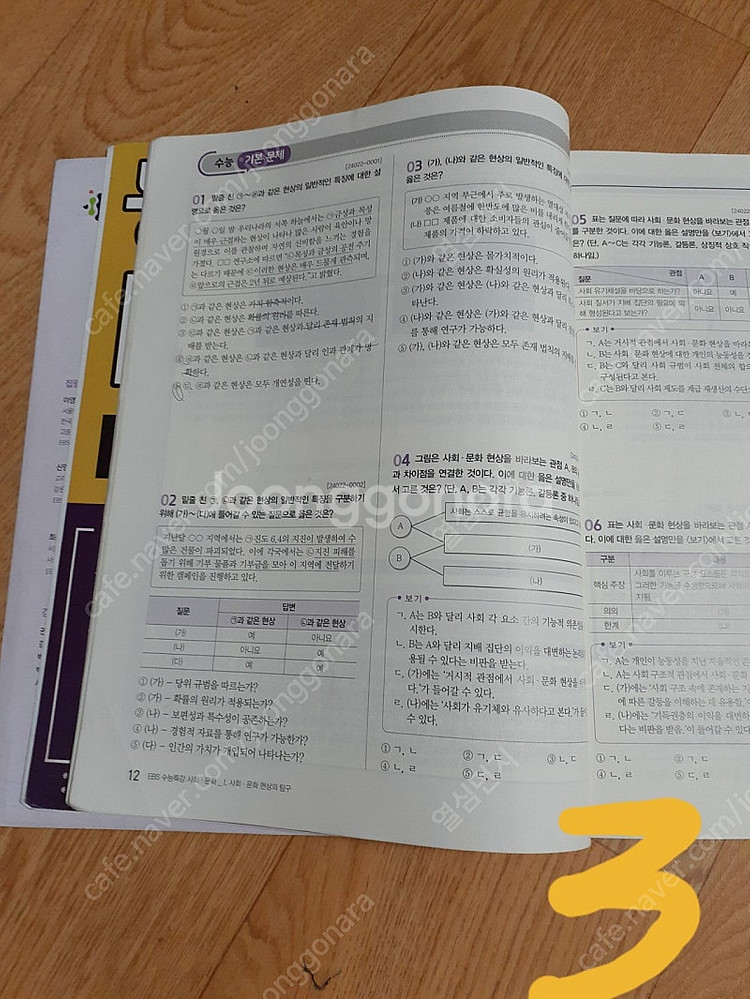 수능 기본 문제
[24022-0001]
01 밑줄 친 ㉠~㉣과 같은 현상의 일반적인 특징에 대한 설
명으로 옳은 것은?
○월 ○일 밤 우리나라의 서쪽 하늘에서는 ㉠금성과 목성
이 매우 근접하는 현상이 나타나 많은 사람이 육안이나 망
원경으로 이를 관찰하며 자연의 신비함을 느끼는 경험을
가졌다. □□ 연구소에 따르면 "㉡목성과 금성의 공전 주기
는 다르기 때문에 ㉢이러한 현상은 매우 드물게 관측되며,
앞으로의 근접은 2년 뒤로 예상된다."고 밝혔다.
① ㉠과 같은 현상은 가치 함축적이다.
② ㉡과 같은 현상은 확률의 원리를 따른다.
③ ㉢과 같은 현상은 ㉠과 같은 현상과 달리 존재 법칙의 지
배를 받는다.
④ ㉣과 같은 현상은 ㉡과 같은 현상과 달리 인과 관계가 명
확하다.
㉣과 같은 현상은 모두 개연성을 띤다.
[24022-0002]
02 밑줄 친 ㉠, ㉡과 같은 현상의 일반적인 특징을 구분하기
위해 (가)~(다)에 들어갈 수 있는 질문으로 옳은 것은?
지난달 ○○ 지역에서는 ㉠진도 6.4의 지진이 발생하여 수
많은 건물이 파괴되었다. 이에 각국에서는 ㉡지진 피해를
돕기 위해 기부 물품과 기부금을 모아 이 지역에 전달하기
위한 캠페인을 진행하고 있다.
질문 답변
㉠과 같은 현상 ㉡과 같은 현상
(가) 예 아니요
(나) 아니요 예
(다) 예 예
① (가) - 당위 규범을 따르는가?
② (가) - 확률의 원리가 적용되는가?
③ (나) - 보편성과 특수성이 공존하는가?
④ (나) - 경험적 자료를 통해 연구가 가능한가?
⑤ (다) - 인간의 가치가 개입되어 나타나는가?
12 EBS 수능특강 사회·문화 _ Ⅰ. 사회·문화 현상의 탐구
03 (가), (나)와 같은 현상의 일반적인 특징에
옳은 것은?
(가) ○○ 지역 부근에서 주로 발생하는 열대성
풍은 여름철에 한반도에 많은 비를 내리게
(나) □□ 제품에 대한 소비자들의 관심이
제품의 가격이 하락하고 있다.
① (가)와 같은 현상은 몰가치적이다.
② (나)와 같은 현상은 확실성의 원리가 적용된다.
③ (가)와 같은 현상은 (나)와 같은 현상과 달리
타난다.
④ (나)와 같은 현상은 (가)와 같은 현상과 달리
를 통해 연구가 가능하다.
⑤ (가), (나)와 같은 현상은 모두 존재 법칙의 지배를
04 그림은 사회·문화 현상을 바라보는 관점 A, B의
과 차이점을 연결한 것이다. 이에 대한 옳은 설명만을
서 고른 것은? (단, A, B는 각각 기능론, 갈등론 중 하나임.)
A
B
사회는 스스로 균형을 유지하려는 속성이 있다고
(가)
(나)
보기
ㄱ. A는 B와 달리 사회 각 요소 간의 기능적 의존성을
시한다.
ㄴ. B는 A와 달리 지배 집단의 이익을 대변하는 논리로
용될 수 있다는 비판을 받는다.
ㄷ. (가)에는 '거시적 관점에서 사회·문화 현상을
다.'가 들어갈 수 있다.
ㄹ. (나)에는 '사회가 유기체와 유사하다고 본다.'가 들어갈
수 있다.
① ㄱ, ㄴ ② ㄱ, ㄷ ③ ㄴ, ㄷ
④ ㄴ, ㄹ ⑤ ㄷ, ㄹ
05 표는 질문에 따라 사회·문화 현상을 바라보는 관점
를 구분한 것이다. 이에 대한 옳은 설명만을 〈보기〉에서 고
은? (단, A~C는 각각 기능론, 갈등론, 상징적 상호 작
하나임.)
질문 관점 A B
사회 유기체설을 바탕으로 하는가? 아니요 예
사회 질서가 지배 집단의 필요에 의
해 형성된다고 보는가? 아니요 아니요
보기
ㄱ. A는 거시적 관점에서 사회·문화 현상을 바라본
ㄴ. B는 사회·문화 현상에 대한 개인의 능동성을
ㄷ. B는 C와 달리 사회 규범이 사회 전체의 합의
구성된다고 본다.
ㄹ. C는 B와 달리 사회 제도를 계급 재생산의 수단
① ㄱ, ㄴ ② ㄱ, ㄷ
④ ㄴ, ㄹ ⑤ ㄷ, ㄹ
06 표는 사회·문화 현상을 바라보는 관점
다. 이에 대한 옳은 설명만을 〈보기〉에서 고른 것
구분
핵심 주장
의의
한계
보기
ㄱ. A는 개인이 능동성을 지닌 자율적인 존
ㄴ. A는 사회 구조적 관점에서 사회·문화
ㄷ. (가)에는 '사회 구조 속에 존재하는
에 따른 갈등을 이해하는 데 유용함.'이
ㄹ. (나)에는 '기득권층의 이익을 대변하
다는 비판을 받음.'이 들어갈 수 있다
① ㄱ, ㄴ ② ㄱ, ㄷ
④ ㄴ, ㄹ ⑤ ㄷ, ㄹ
3
cafe.naver.com/joonggonara
joonggonara
열심먼지